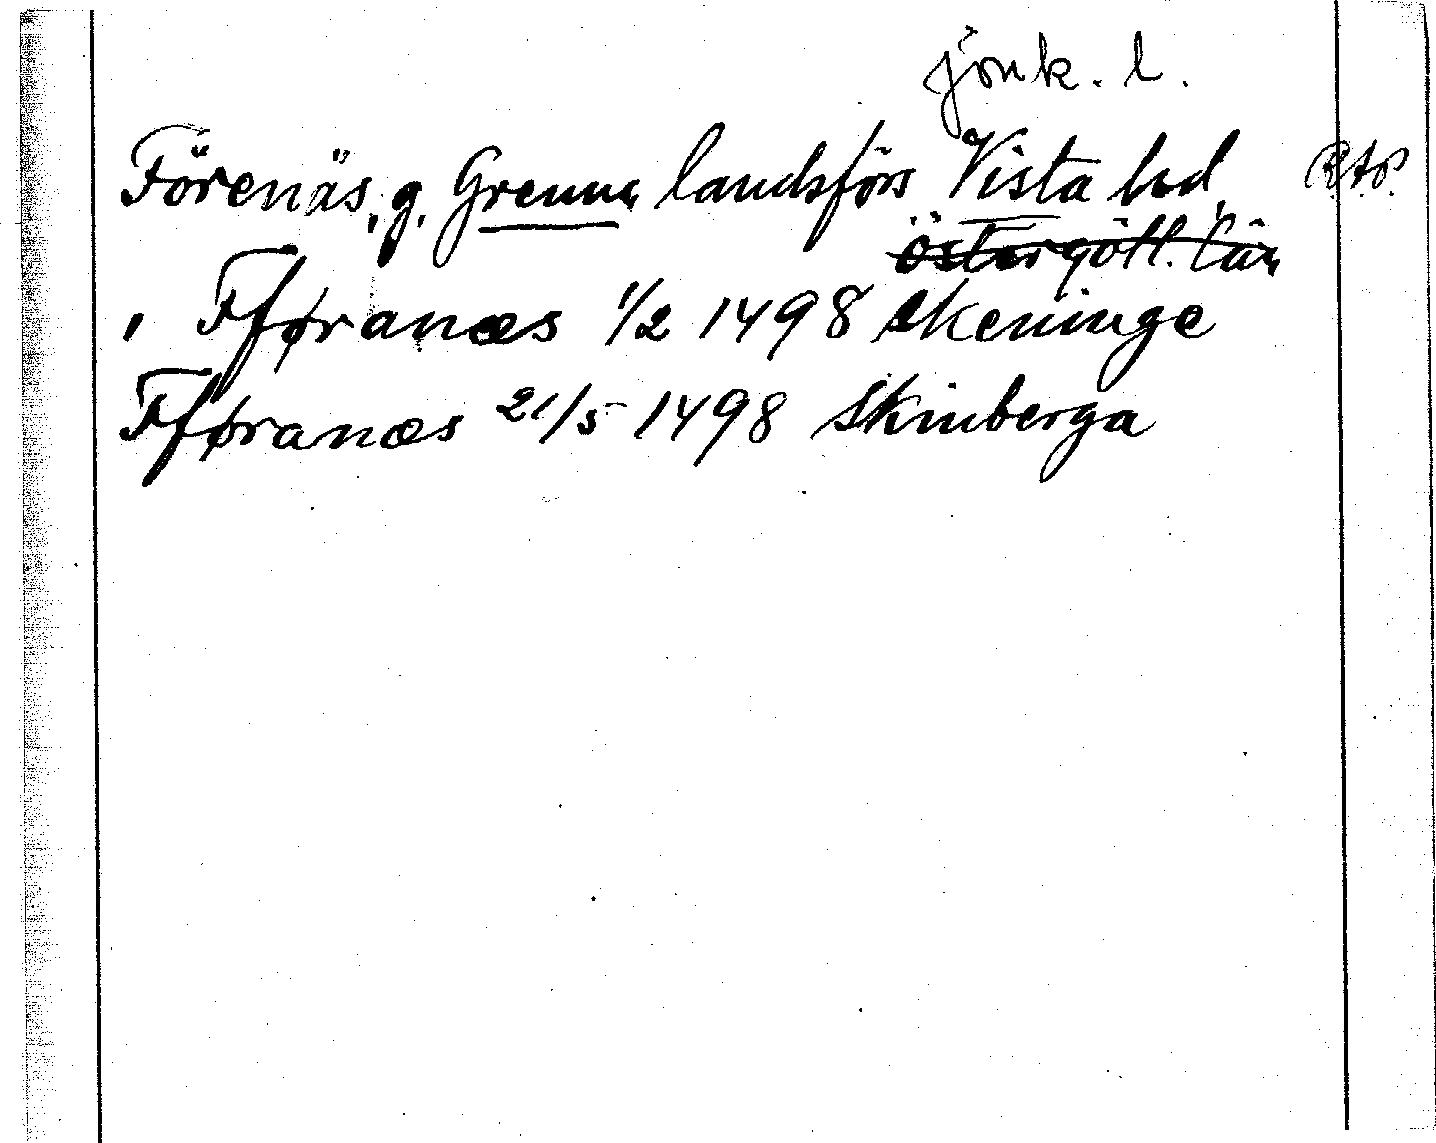 Jönk. l.
Förenäs, g. Grenna landsförs Vista hd, R.A.P.
östergötl. län
, Fføranæs 1/2 1498 Skeninge
Fføranæs 21/5 1498 Skinberga